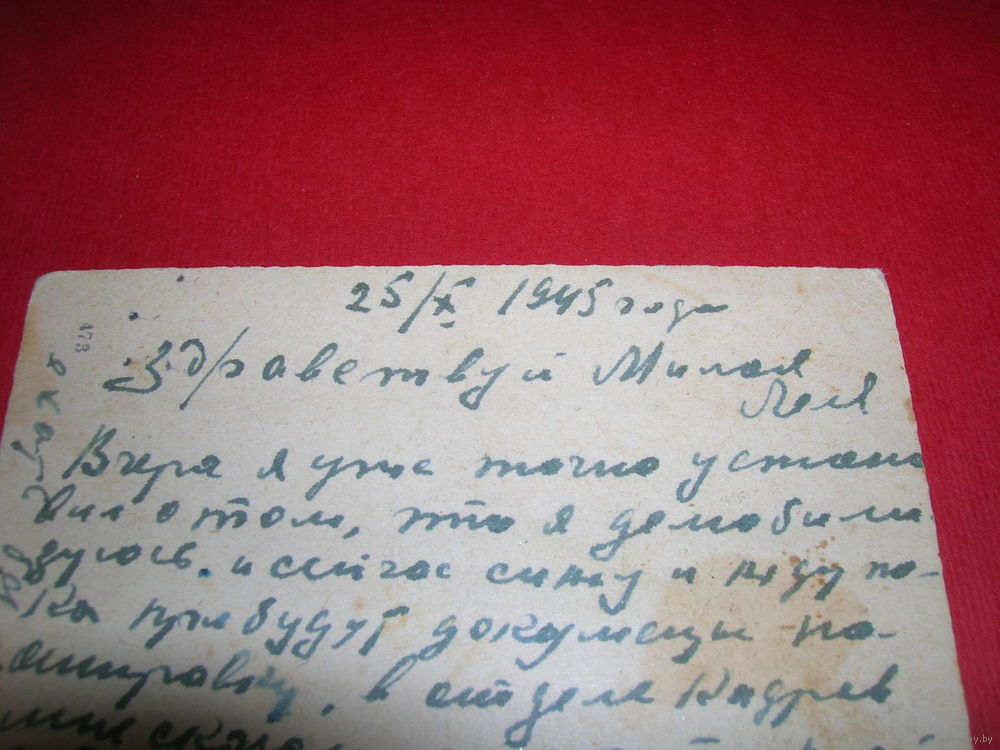 25/X 1945 года
Здравствуй Милая
Леля
Вчера я уже точно устано
вил о том, что я демобили
зуюсь, и сейчас сижу и жду по-
ка прибудут документы на-
в отделе кадров
мне
473
ay.by